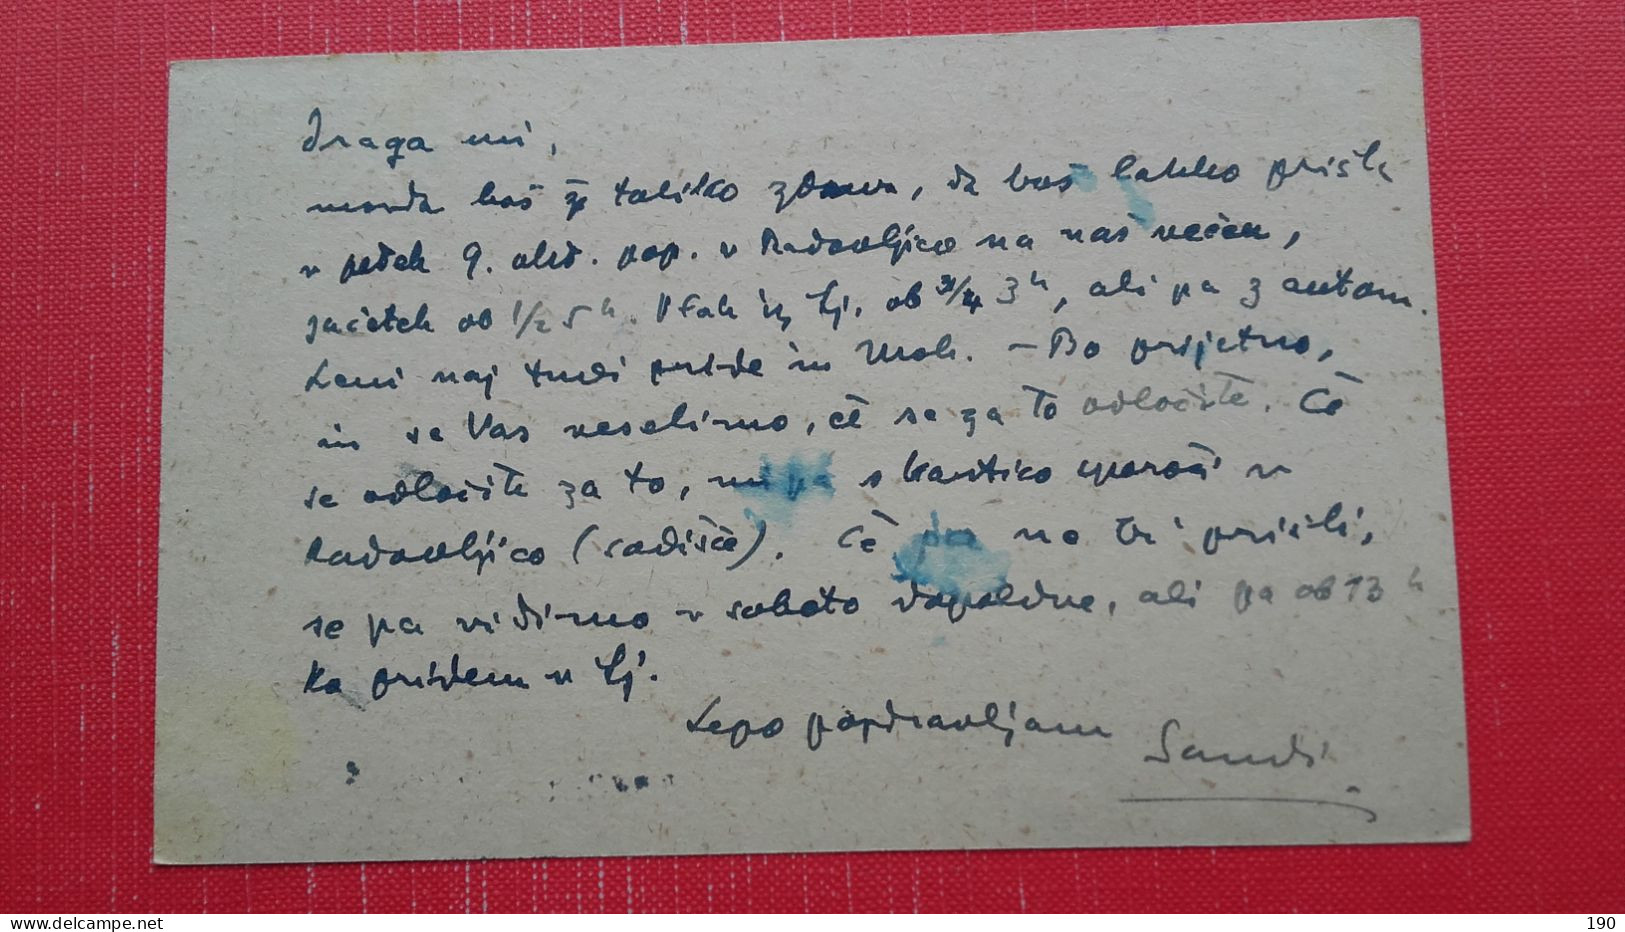 Draga mi,
morda boš že toliko zdrava, da boš lahko prišla
v petek 9. okt. pop. v Radovljico na naš večer,
začetek ob 1/2 5 h. Vlak iz Lj. ob 3/4 3 h, ali pa z autom.
Leni naj tudi pride in . – Bo prijetno,
in se Vas veselimo, če se za to odločite. Če
se odločite za to, mi pa s kartico sporoči v
Radovljico (sodišče). Če pa ne bi prišli,
se pa vidimo v soboto dopoldne, ali pa ob 13 h
ko pridem v Lj.
Lepo pozdravljam
Sandi
www.delcampe.net
190